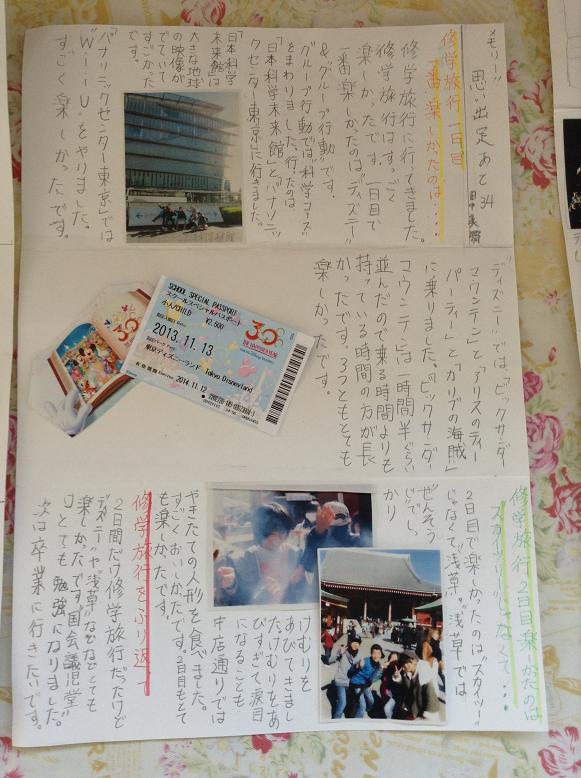 メモリー!!
思い出足あと 34
修学旅行一日目
一番楽しかったのは…
修学旅行に行ってきました。
修学旅行はすっごく
楽しかったです。一日目で
一番楽しかったのは"ディズニー"
&グループ行動です。
グループ行動では"科学コース"
をまわりました。行ったのは
「日本科学未来館」と「パナソニッ
クセンター東京」に行きました。
「日本科学
未来館」は
大きな地球
の映像が
でていて
すごかった
です。
「パナソニックセンター東京」では
"Wii U"をやりました。
すごく楽しかったです。
"ディズニー"では、「ビックサンダー
マウンテン」と「アリスのティー
パーティー」と「カリブの海賊」
に乗りました。「ビックサンダー
マウンテン」は一時間半ぐらい
並んだので乗る時間よりも
持っている時間の方が長
かったです。3つともとても
楽しかったです。
SCHOOL SPECIAL PASSPORT
スクールスペシャルパスポート
小人/CHILD ¥2,500
2013.11.13
東京ディズニーランド Tokyo Disneyland
2014.11.12
30
THE HAPPINESS YEAR
修学旅行2日目楽しかたのは
スカイツリーじゃなくて…
2日目で楽かったのは"スカイツリー"
じゃなくて"浅草"。"浅草"では
ぜんそう
じでしっ
かり
けむりを
あびてきまし
た。けむりをあ
びすぎて涙目
になることも
中店通りでは
やきたての人形を食べました。
すごくおいしかたです。2日目もとて
も楽しかたです。
修学旅行をふり返って
2日間だけ修学旅行だったけど
"ディズニー"や"浅草"などなどとても
楽しかたです。"国会議児堂"
はとても勉強になりました。
次は卒業に行きたいです。